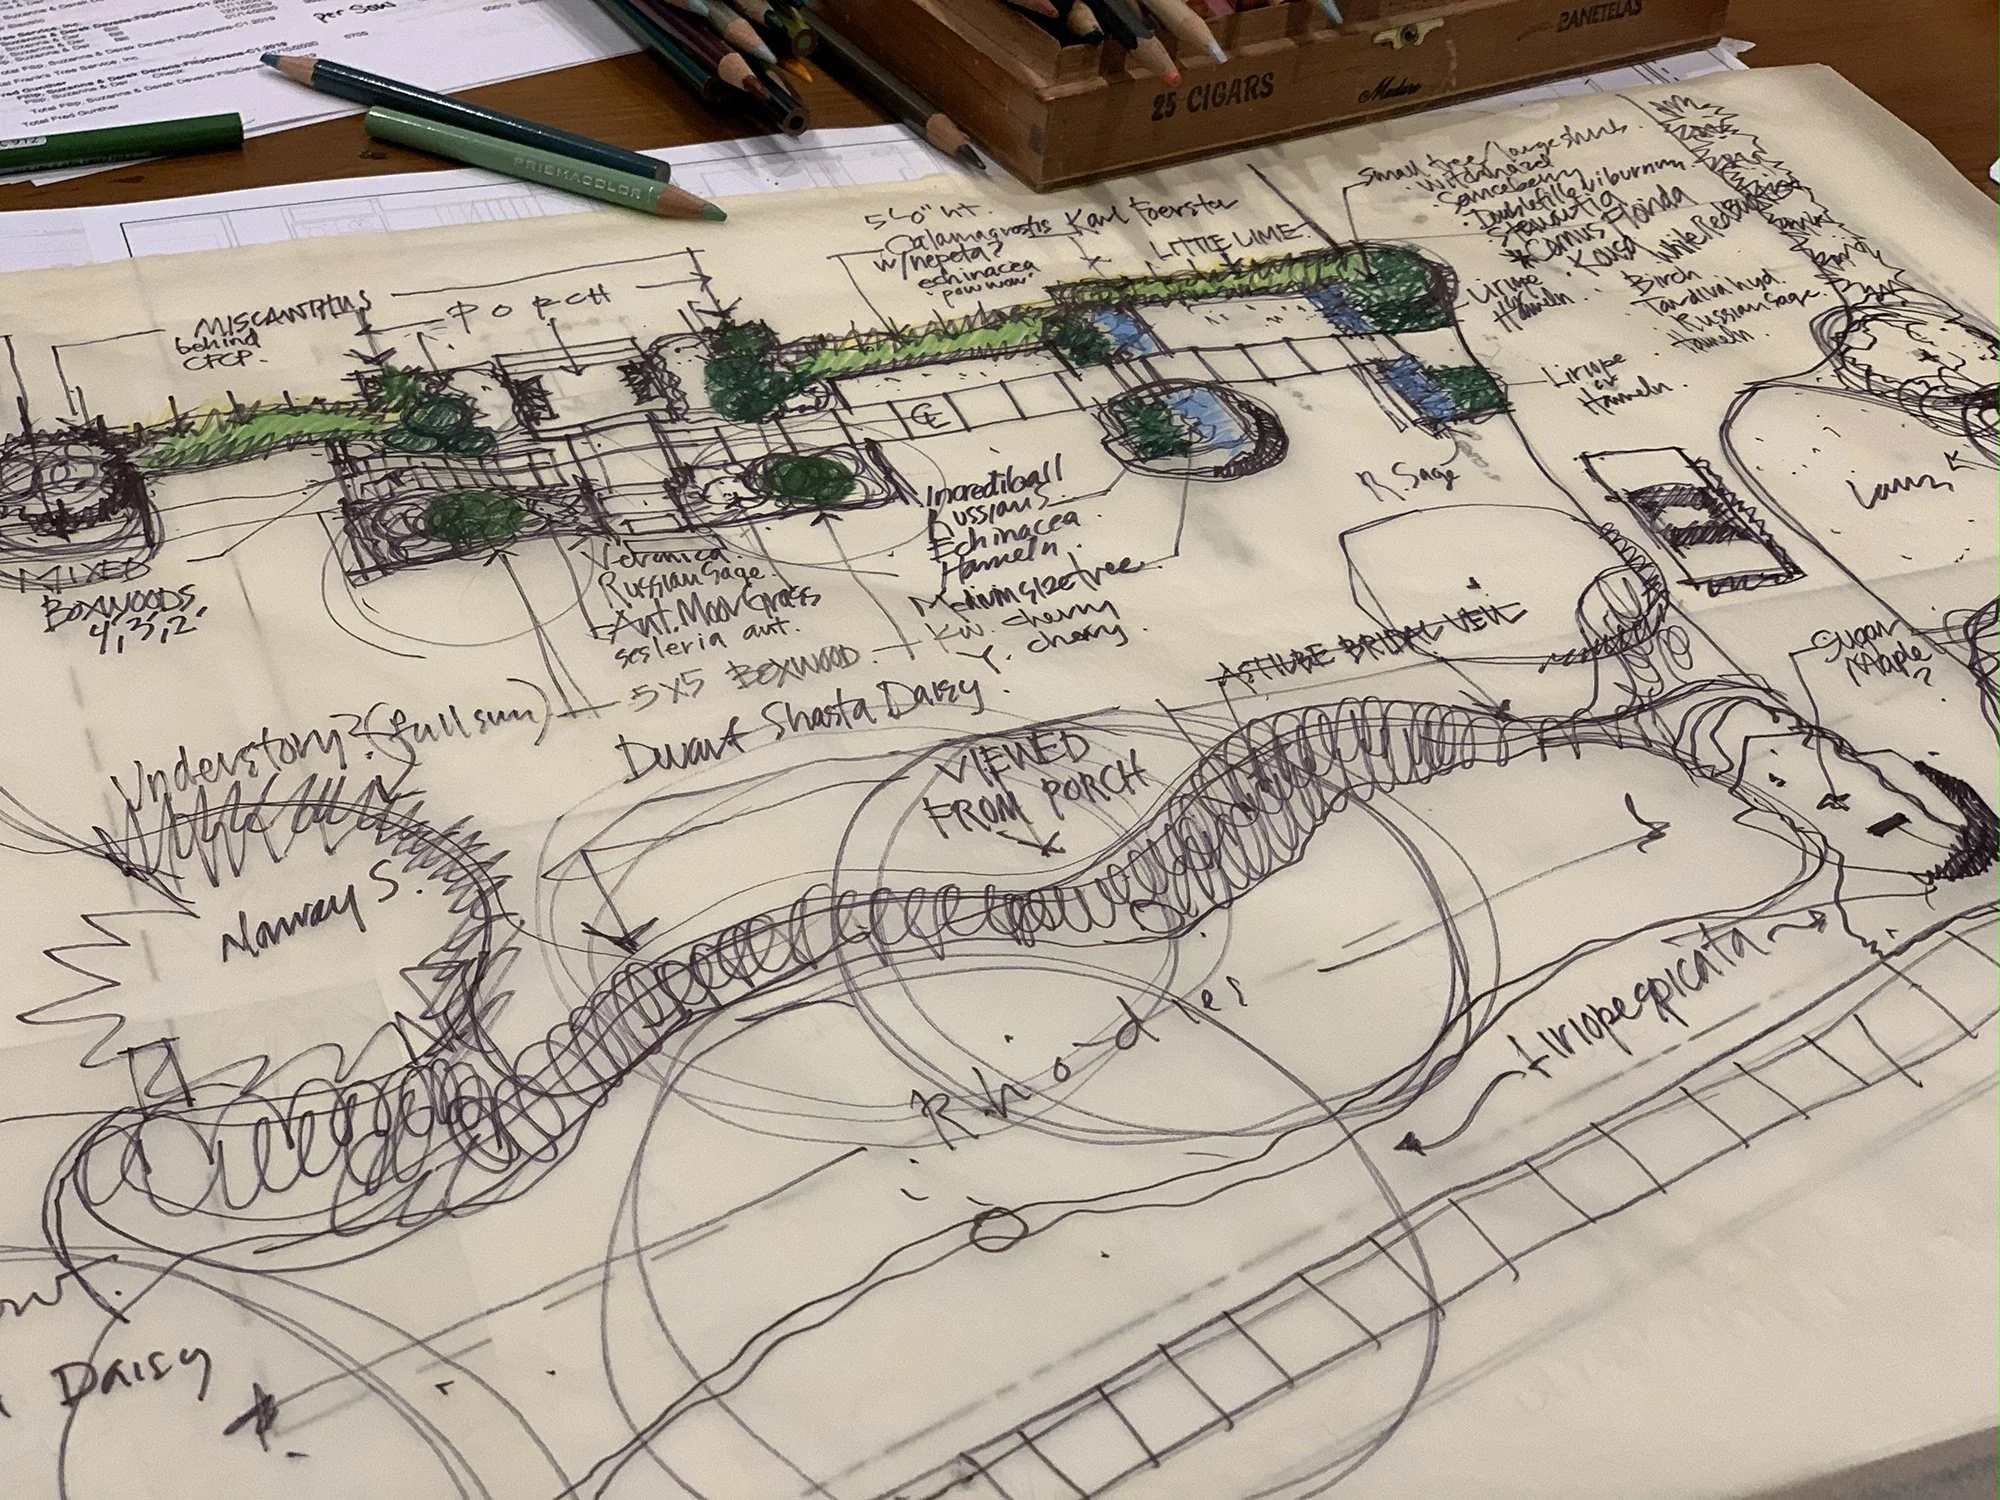 per Sow
Total Frank's Tree Service, Inc
Check
Total Fred Gunther
PRISMACOLOR
25 CIGARS
Maduro
PANETELAS
MISCANTHUS
behind
CFCP.
PORCH
5'-0" ht.
Calamagrostis Karl Foerster
w/nepeta?
echinacea
"pow wow"
LITTLE LIME
Small tree/large shrub.
Witchhazel
Doublefile viburnum
Stewartia
*Cornus Florida
Kousa
White Redbud
Birch
Tardiva hyd.
Russian Sage.
Hameln.
Liriope
Hameln.
Liriope
or
Hameln.
CL
MIXED
BOXWOODS,
4, 3, 2'
Veronica
Russian Sage.
Aut. Moor Grass
sesleria aut.
5x5 BOXWOOD.
Dwarf Shasta Daisy.
Incrediball
Russians.
Echinacea.
Hameln.
Medium size tree.
Kw. cherry
Y. cherry.
R. Sage
Lawn
Sugar
Maple?
ASTILBE BRIDAL VEIL
Understory? (full sun)
Norway S.
VIEWED
FROM PORCH
Rhodies
Liriope spicata
Daisy